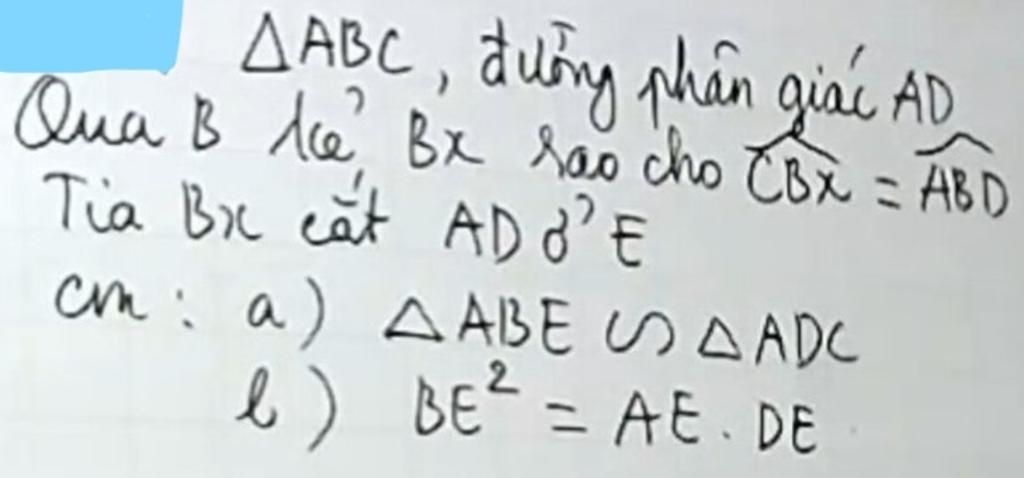 △ABC, đường phân giác AD
Qua B kẻ Bx sao cho \widehat{CBx} = \widehat{ABD}
Tia Bx cắt AD ở E
cm : a) △ABE ∽ △ADC
b) BE² = AE . DE